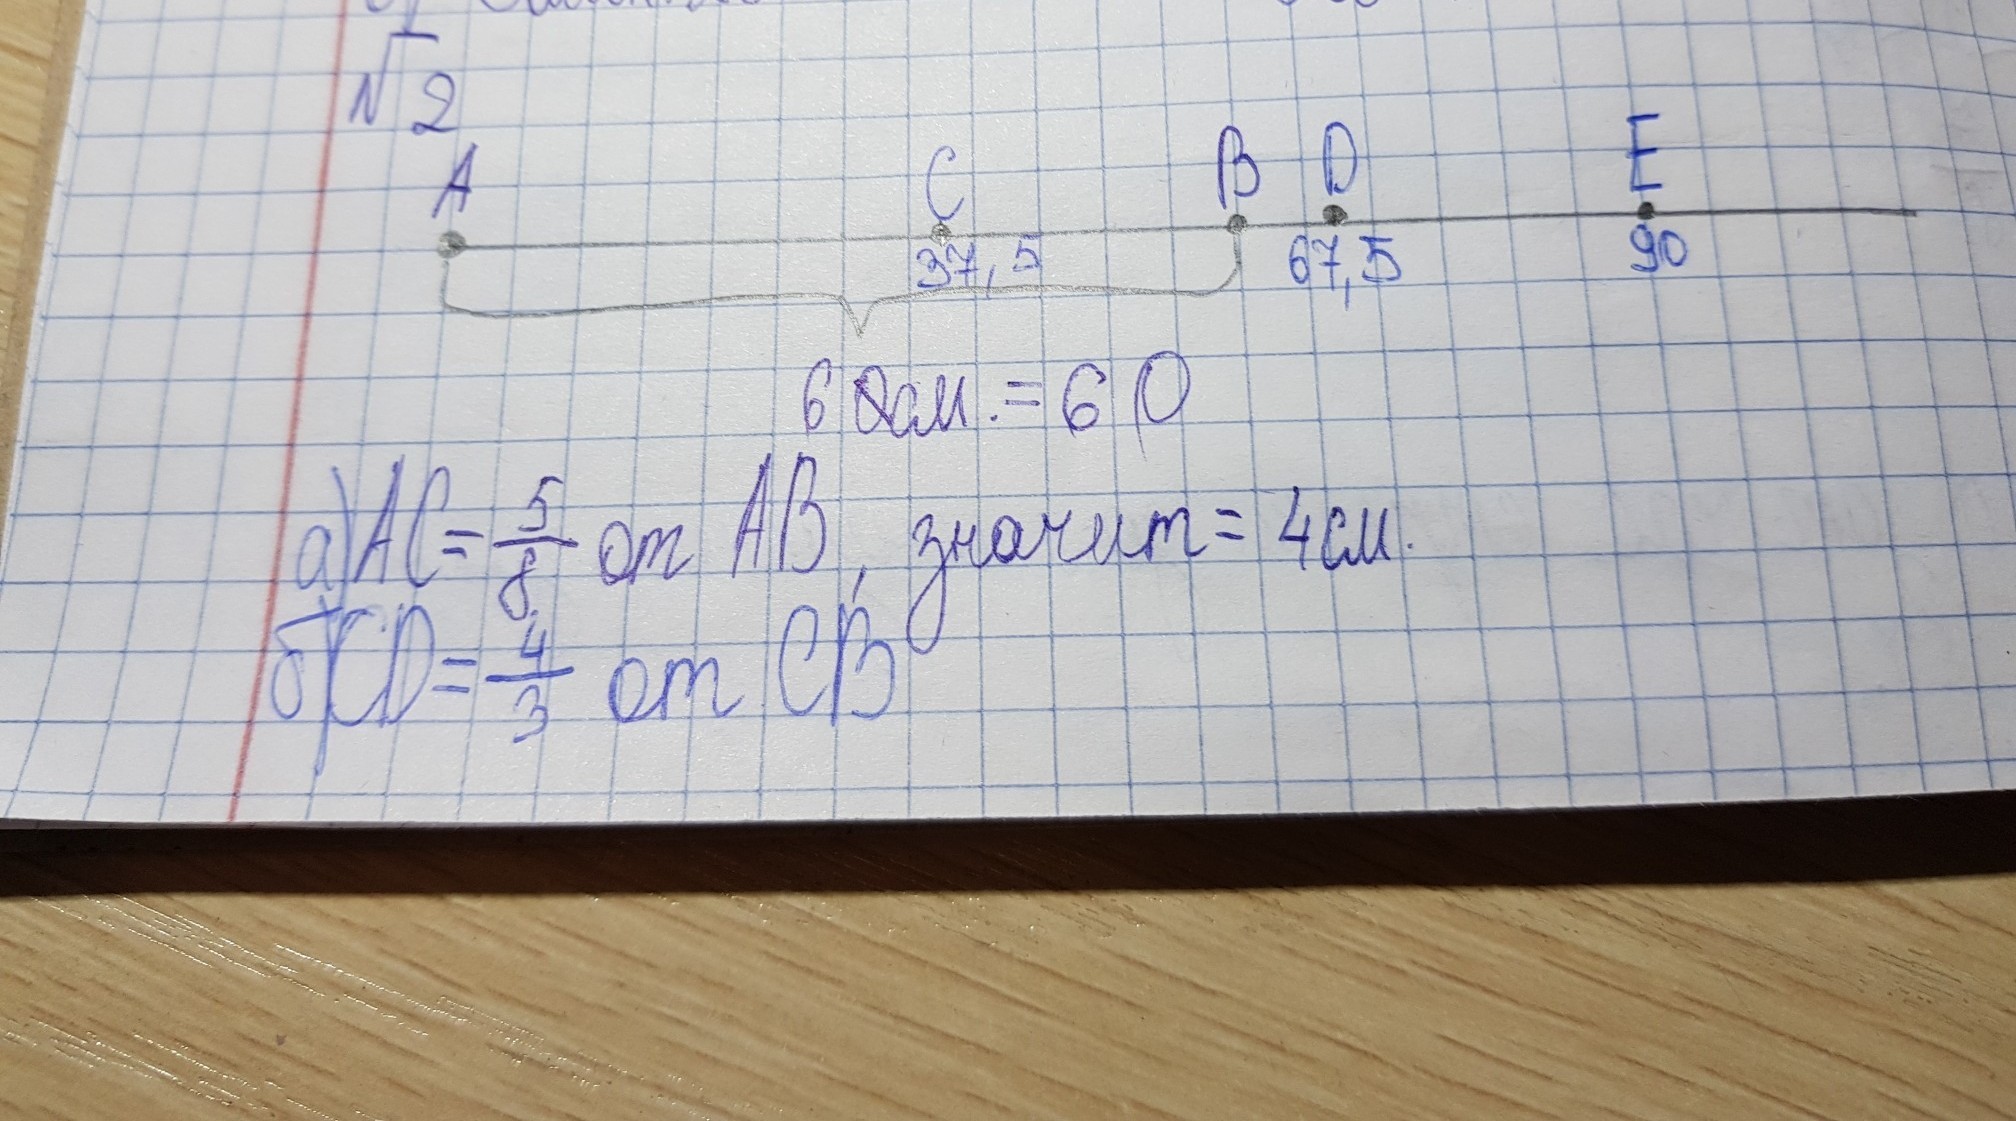 №2
A C B D E
37,5 67,5 90
60см. = 60
а) AC = 5/8 от AB, значит = 4см.
б) CD = 4/3 от CB